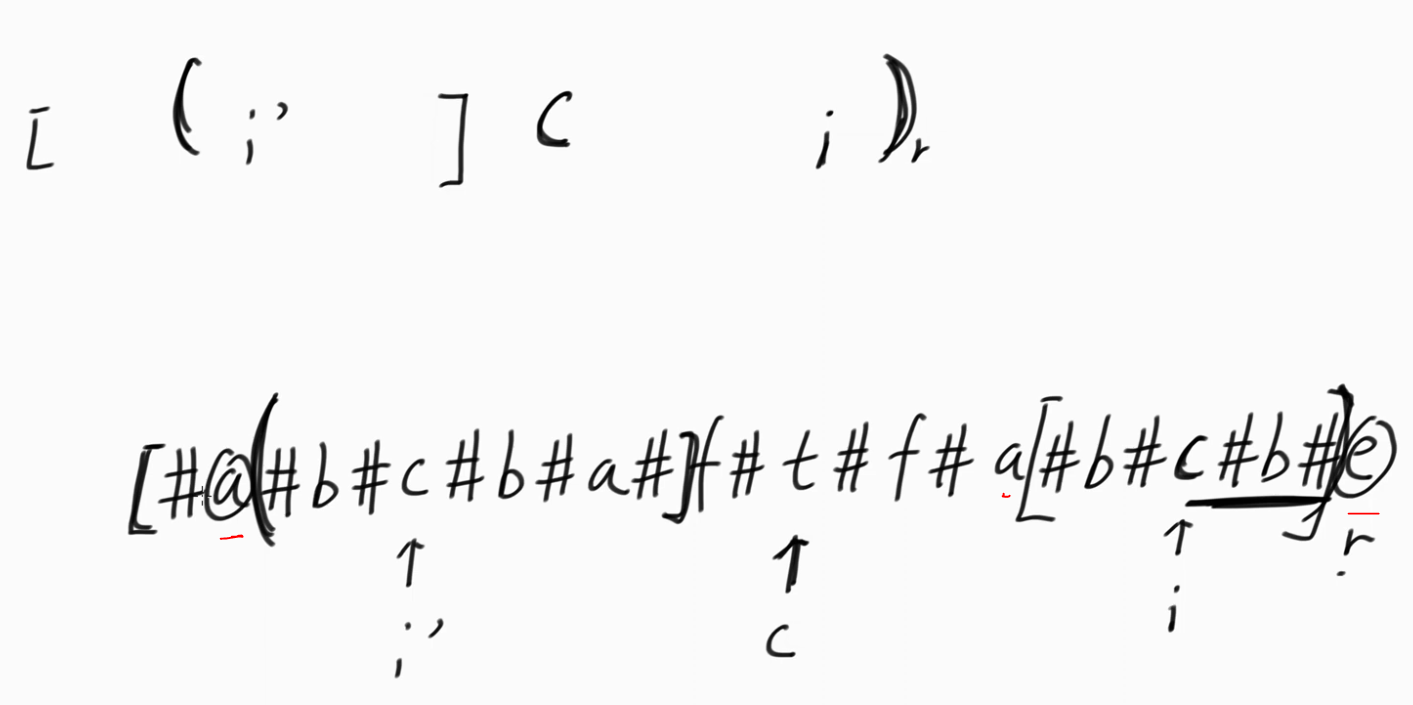 [ ( i' ] c i ) r
[#a(#b#c#b#a#]f#t#f#a[#b#c#b#])e
↑ ↑ ↑ r
i' c i